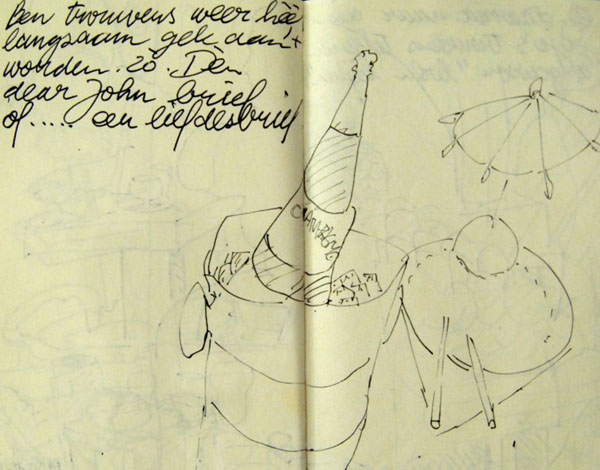 Ben trouwens weer héé
langzaam gek aan 't
worden. zò. Dèn
dear John brief
of..... een liefdesbrief
CHAMPAGNE